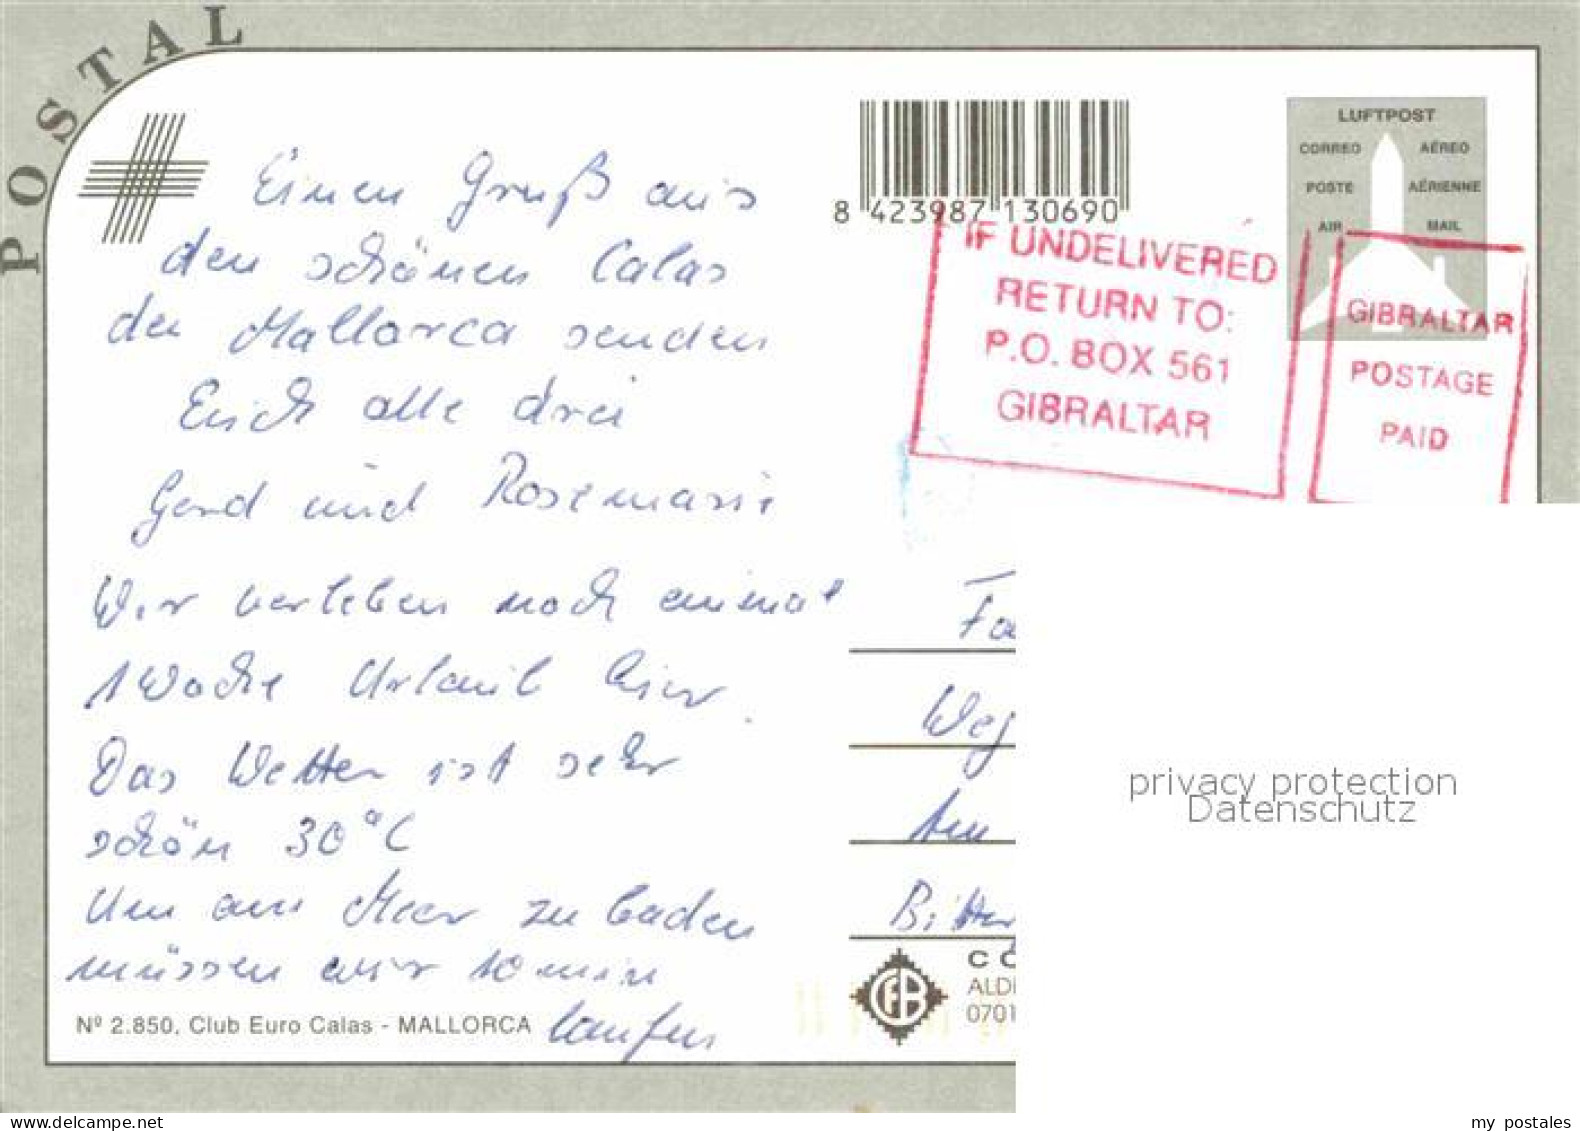 POSTAL
Einen Gruß aus
den schönen Calas
der Mallorca senden
Euch alle drei
Gerd und Rosemarie
Wir verleben noch einmal
1 Woche Urlaub hier.
Das Wetter ist sehr
schön 30°C
Um am Meer zu baden
müssen wir 10 min
laufen
Nº 2.850, Club Euro Calas - MALLORCA
8 423987 130690
LUFTPOST
CORREO AÉREO
POSTE AÉRIENNE
AIR MAIL
IF UNDELIVERED
RETURN TO:
P.O. BOX 561
GIBRALTAR
GIBRALTAR
POSTAGE
PAID
Fa
Weg
Am
Bitter
CFB
CO
ALD
0701
privacy protection
Datenschutz
my postales